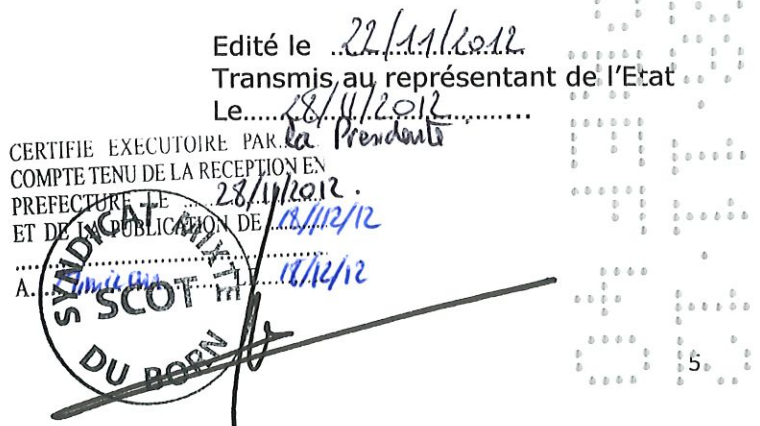 Edité le ..22/11/2012
Transmis au représentant de l'Etat
Le.....28/11/2012..........
CERTIFIE EXECUTOIRE PAR.. la Presidente
COMPTE TENU DE LA RECEPTION EN
PREFECTURE LE ..... 28/11/2012.
ET DE LA PUBLICATION DE 18/12/12
A.... LE 18/12/12
SYNDICAT MIXTE
SCOT
DU BORN
5